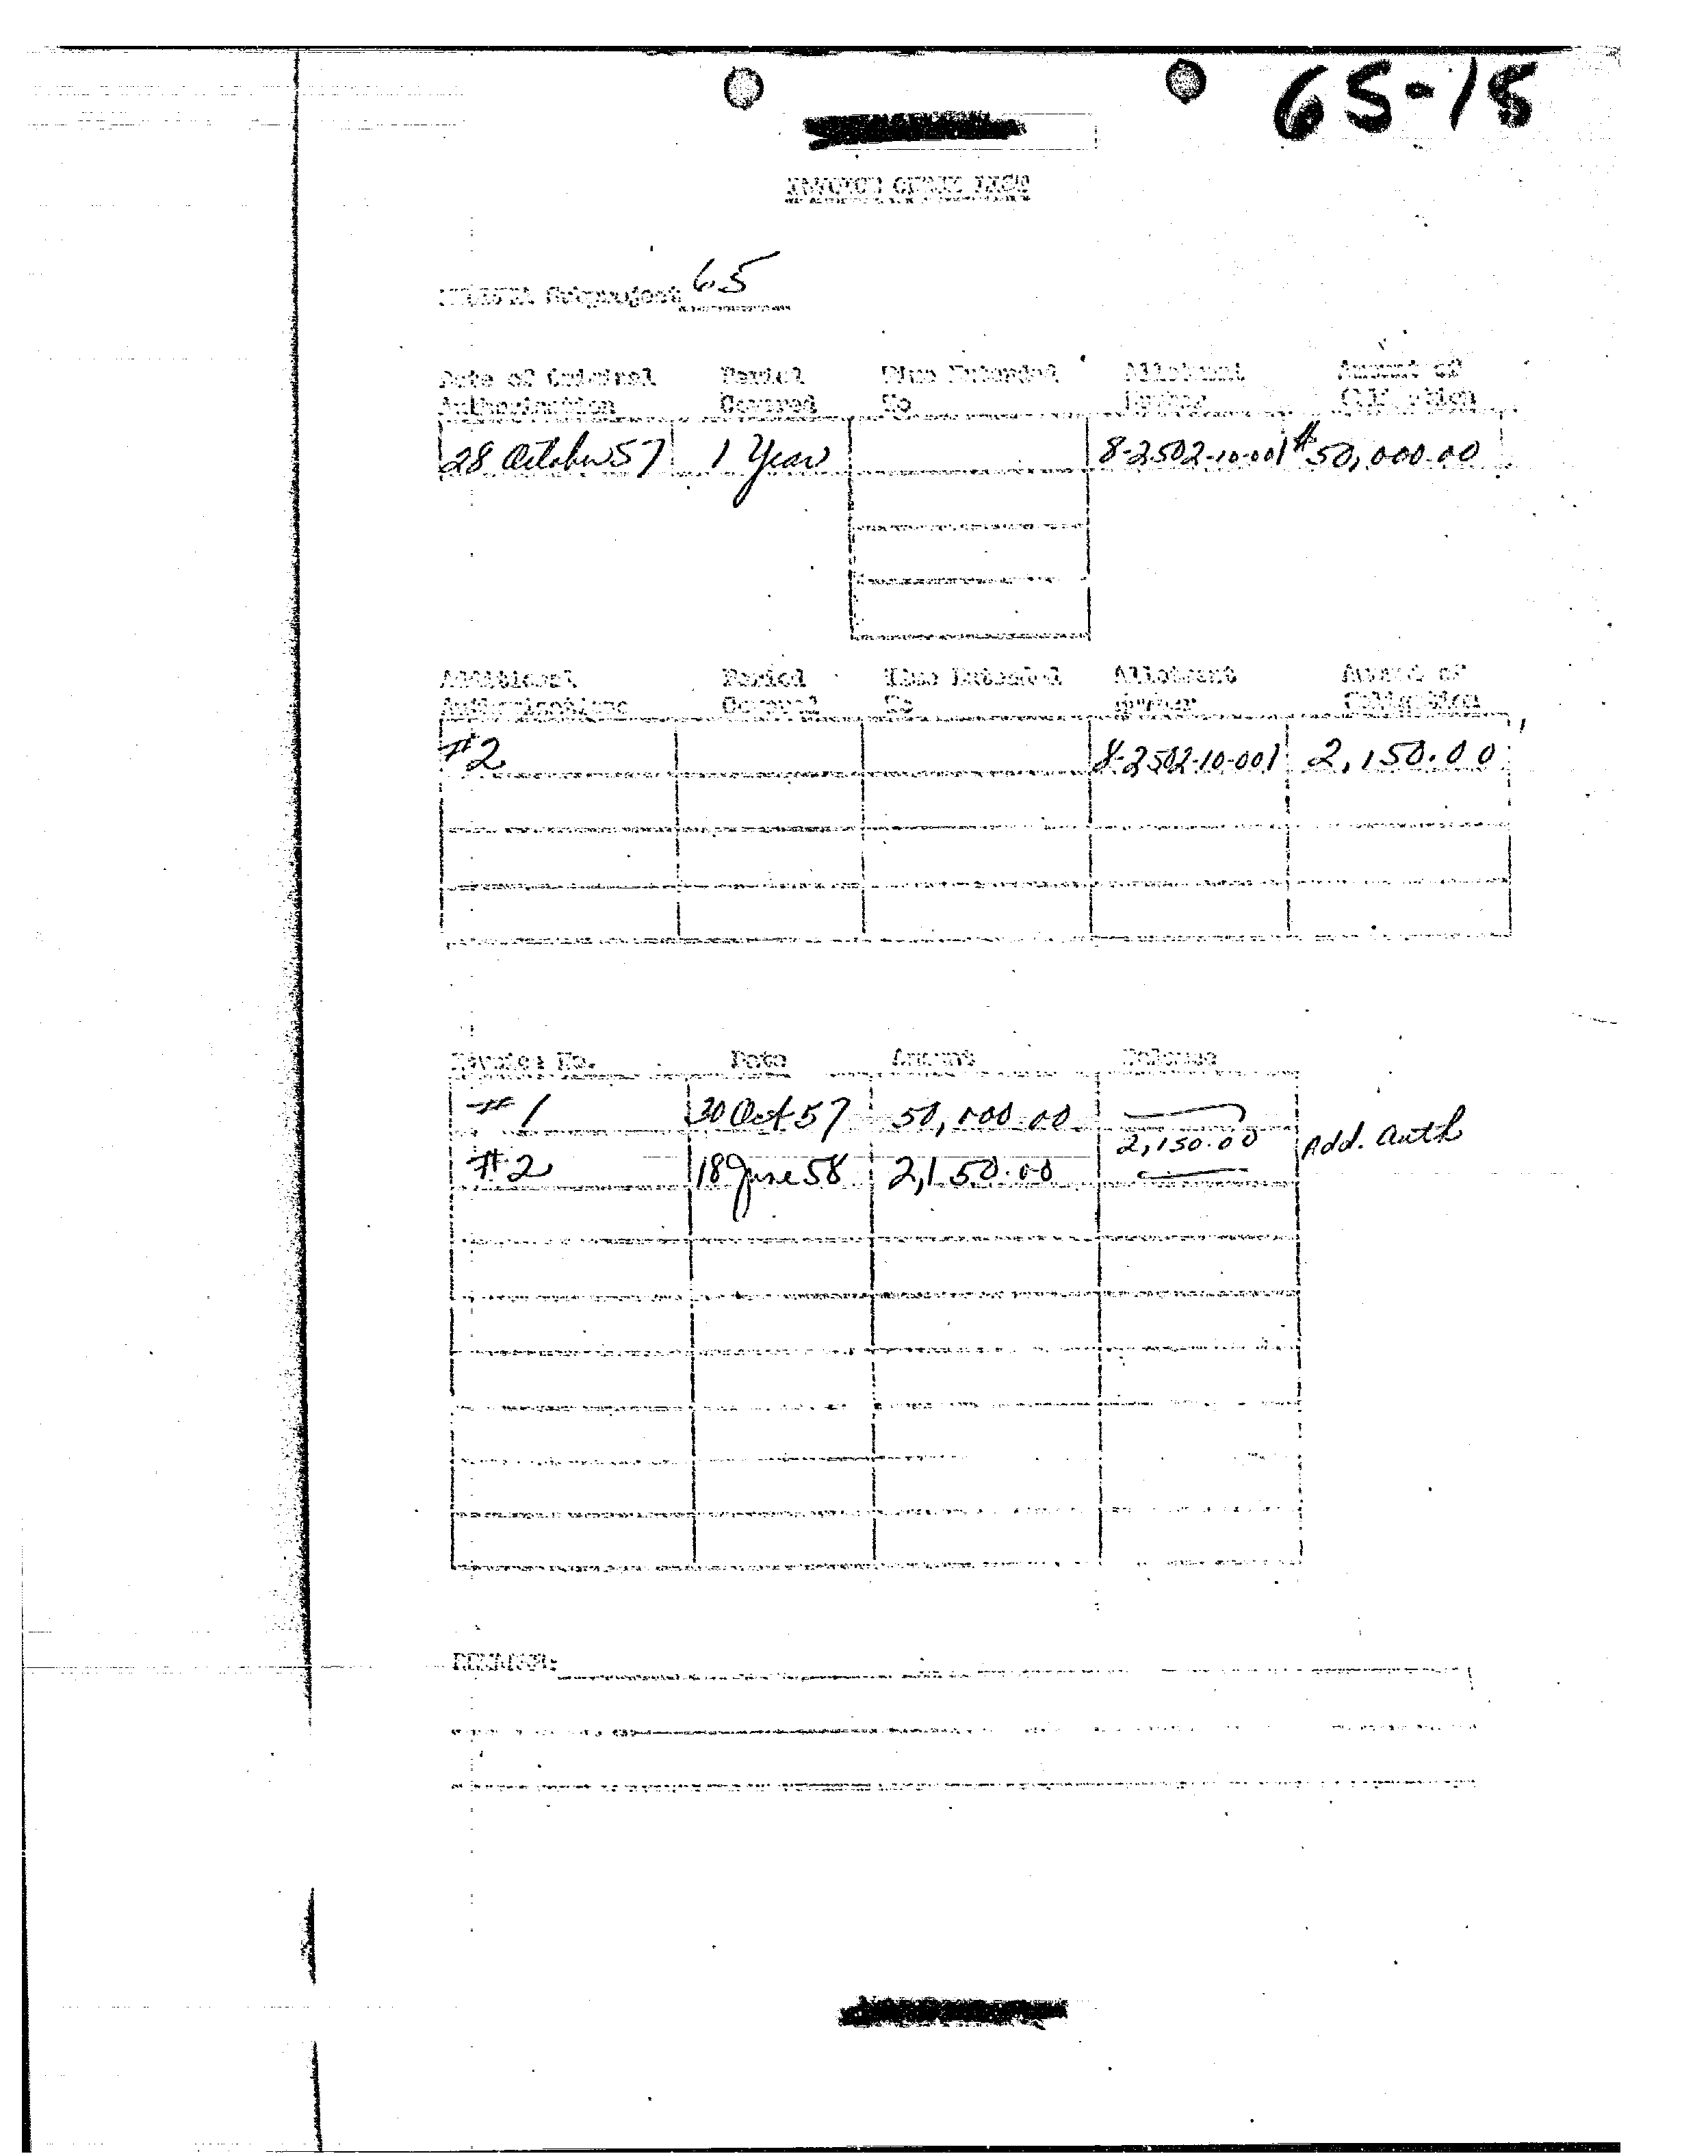 65-15
INVOICE CHECK LIST
MKULTRA Subproject 65
Date of Original Period Time Extended Allotment Amount of
Authorization Covered To Number Obligation
28 October 57 1 Year 8-2502-10-001 $50,000.00
Additional Period Time Extended Allotment Amount of
Authorizations Covered To Number Obligation
#2 8-2502-10-001 2,150.00
Invoice No. Date Amount Balance
#1 30 Oct 57 50,000.00
2,150.00 Add. Auth
#2 18 June 58 2,150.00
REMARKS: